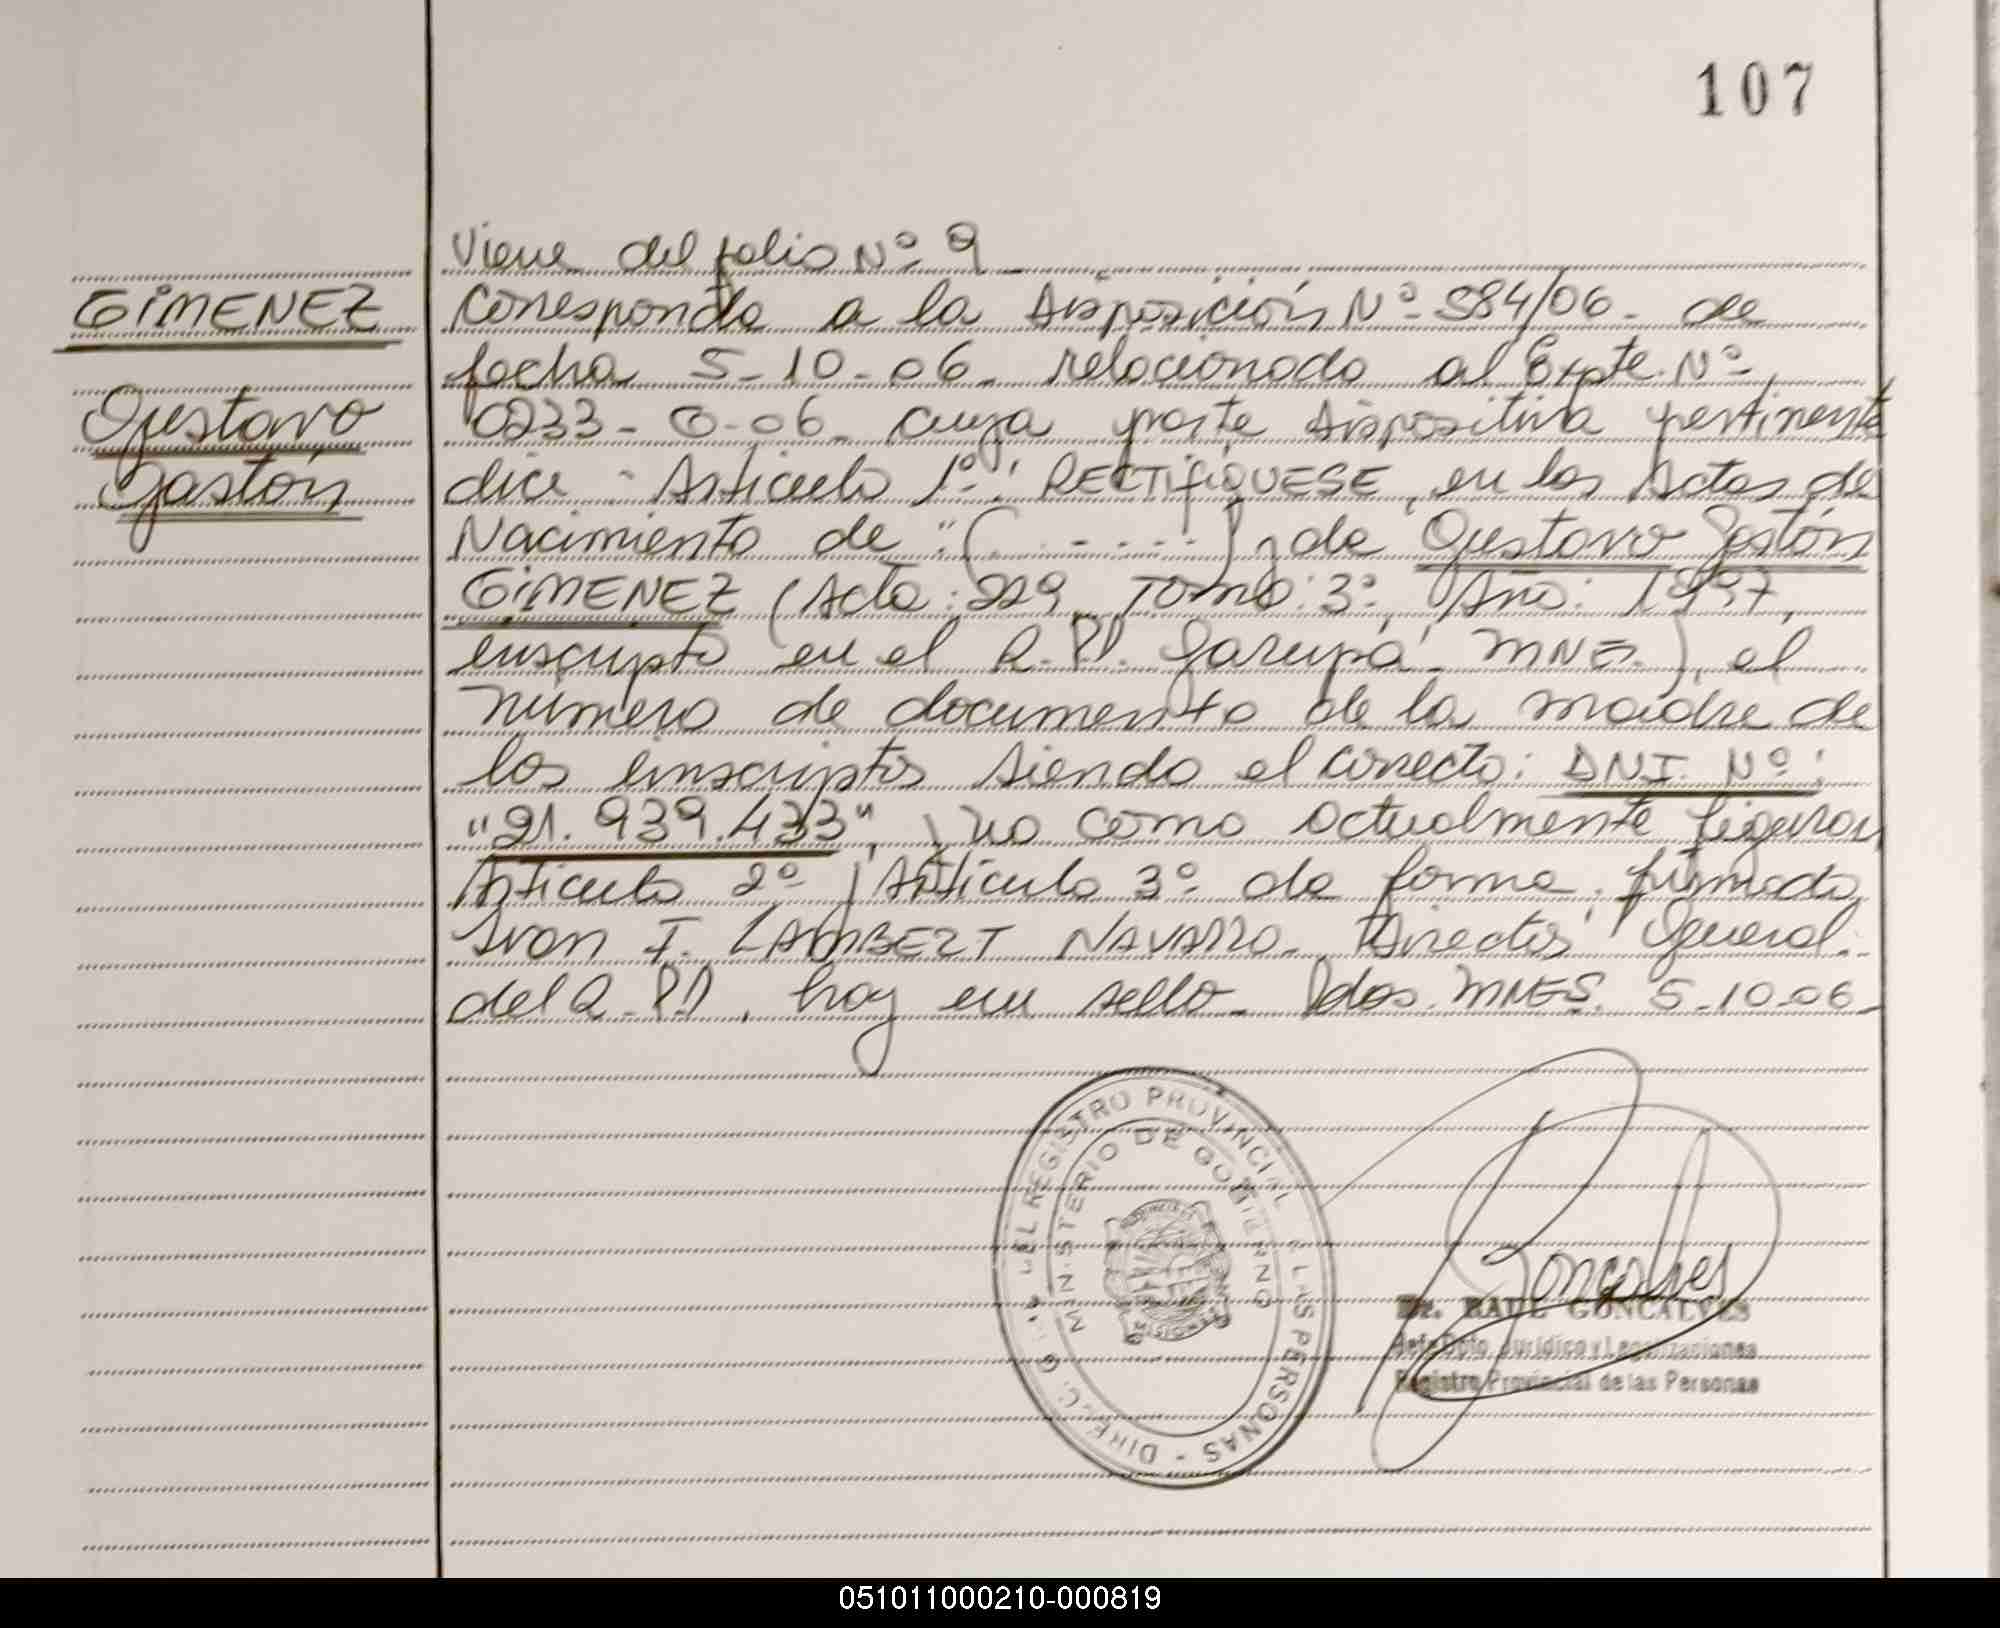 107
Viene del folio Nº 9
GIMENEZ
Gustavo
Gastón
Corresponde a la Disposición Nº 984/06 - de
fecha 5-10-06 - relacionado al Expte. Nº
0233- G-06- cuya parte dispositiva pertinente
dice: Artículo 1º: RECTIFIQUESE, en las Actas de
Nacimiento de "(.....) y de Gustavo Gastón
GIMENEZ (Acta: 229, Tomo: 3º, Año: 1997,
inscripto en el R.P.P. Garupá - MNES.), el
número de documento de la madre de
los inscriptos siendo el correcto: DNI. Nº:
"21.939.433", y no como actualmente figuran,
Artículo 2º y Artículo 3º de forma, firmado
Ivan I. LAMBERT NAVARRO - Director General
del R.P.P. hay un sello - Pdas. MNES. 5-10-06-
DIRECC. GRAL. DEL REGISTRO PROVINCIAL DE LAS PERSONAS -
MINISTERIO DE GOBIERNO
PROVINCIA DE
MISIONES
Goncalves
Dr. RAUL GONCALVES
Jefe Dpto. Jurídico y Legalizaciones
Registro Provincial de las Personas
051011000210-000819